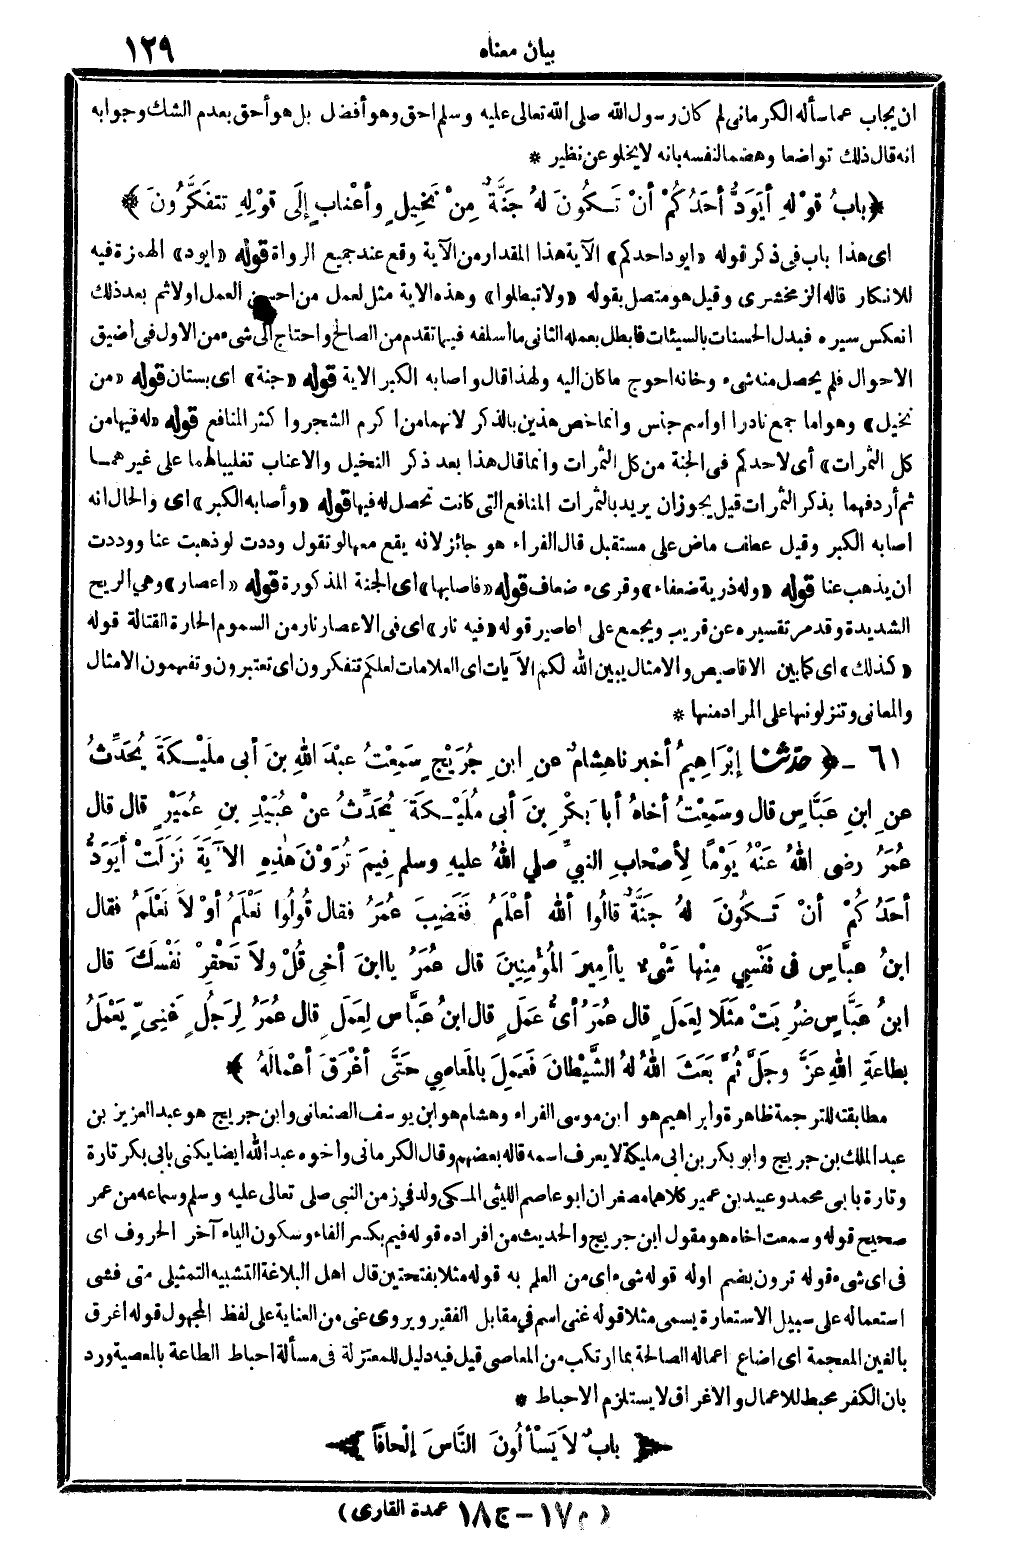 بيان معناه ١٢٩
ان يجاب عما سأله الكرماني لم كان رسول الله صلى الله تعالى عليه وسلم احق وهو أفضل بل هو أحق بعدم الشك وجوابه
انه قال ذلك تواضعا وهضما لنفسه بانه لا يخلو عن نظير *
﴿ بابُ قَوْلِهِ أيَوَدُّ أحَدُكُمْ أنْ تَكُونَ لهُ جَنَّةٌ مِنْ نَخِيلٍ وأعْنابٍ إلَى قَوْلِهِ تتَفَكَّرُونَ ﴾
اى هذا باب فى ذكر قوله «ايود احدكم» الآية هذا المقدار من الآية وقع عند جميع الرواة قوله «ايود» الهمزة فيه
للانكار قاله الزمخشرى وقيل هو متصل بقوله «ولا تبطلوا» وهذه الاية مثل لعمل من احسن العمل اولا ثم بعد ذلك
انعكس سيره فبدل الحسنات بالسيئات فابطل بعمله الثانى ما أسلفه فيما تقدم من الصالح واحتاج الى شىء من الاول فى أضيق
الاحوال فلم يحصل منه شىء وخانه احوج ما كان اليه ولهذا قال واصابه الكبر الاية قوله «جنة» اى بستان قوله «من
نخيل» وهو اما جمع نادرا او اسم جنس وانما خص هذين بالذكر لانهما من اكرم الشجر واكثر المنافع قوله «له فيها من
كل الثمرات» أى لاحدكم فى الجنة من كل الثمرات وانما قال هذا بعد ذكر النخيل والاعناب تغليبا لهما على غيرهما
ثم أردفهما بذكر الثمرات قيل يجوز ان يريد بالثمرات المنافع التى كانت تحصل له فيها قوله «وأصابه الكبر» اى والحال انه
اصابه الكبر وقيل عطف ماض على مستقبل قال الفراء هو جائز لانه يقع معها لو تقول وددت لو ذهبت عنا ووددت
ان يذهب عنا قوله «وله ذرية ضعفاء» وقرىء ضعاف قوله «فاصابها» اى الجنة المذكورة قوله «اعصار» وهي الريح
الشديدة وقد مر تفسيره عن قريب ويجمع على اعاصير قوله «فيه نار» اى فى الاعصار نار من السموم الحارة القتالة قوله
«كذلك» اى كما بين الاقاصيص والامثال يبين الله لكم الآيات اى العلامات لعلكم تتفكرون اى تعتبرون وتفهمون الامثال
والمعانى وتنزلونها على المراد منها *
٦١ - ﴿ حَدَّثَنَا إبْرَاهِيمُ أخبرنا هِشامٌ عنِ ابنِ جُرَيْجٍ سَمِعْتُ عبْدَ اللهِ بنَ أبى مُلَيْكَةَ يُحَدِّثُ
عنِ ابنِ عَبَّاسٍ قال وسَمِعْتُ أخاهُ أبا بَكْرِ بنَ أبى مُلَيْكَةَ يُحَدِّثُ عنْ عُبَيْدِ بنِ عُمَيْرٍ قال قال
عُمَرُ رضى اللهُ عَنْهُ يَوْمًا لِأصْحابِ النبيِّ صلي اللهُ عليهِ وسلم فِيمَ تُرَوْنَ هَذِهِ الآيَةَ نَزَلَتْ أيَوَدُّ
أحَدُكُمْ أنْ تَكُونَ لهُ جَنَّةٌ قالُوا ألله أعْلَمُ فَغَضِبَ عُمَرُ فقال قُولُوا نَعْلَمُ أوْ لاَ نَعْلَمُ فقال
ابنُ عبَّاسٍ فى نَفْسِي مِنْها شَىْء يا أمِيرَ المُؤْمِنِينَ قال عُمَرُ يا ابنَ أخِى قُلْ ولاَ تَحْقِرْ نَفْسَكَ قال
ابنُ عَبَّاسٍ ضُرِبَتْ مثَلًا لِعَمَلٍ قال عُمَرُ أىُّ عَمَلٍ قال ابنُ عَبَّاسٍ لِعَمَلٍ قال عُمَرُ لِرَجُلٍ غَنِىٍّ يَعْمَلُ
بطاعَةِ اللهِ عزَّ وجَلَّ ثُمَّ بَعَثَ اللهُ لهُ الشَّيْطانَ فَعَمِلَ بالمَعاصِي حَتَّى أغْرَقَ أعْمالَهُ ﴾
مطابقته للترجمة ظاهرة وابراهيم هو ابن موسى الفراء وهشام هو ابن يوسف الصنعانى وابن جريج هو عبد العزيز بن
عبد الملك بن جريج وابو بكر بن ابى مليكة لا يعرف اسمه قاله بعضهم وقال الكرمانى وأخوه عبد الله ايضا يكنى بابى بكر تارة
وتارة بابى محمد وعبيد بن عمير كلاهما مصغران ابو عاصم الليثى المكى ولد في زمن النبي صلى تعالى عليه وسلم وسماعه من عمر
صحيح قوله وسمعت اخاه هو مقول ابن جريج والحديث من افراده قوله فيم بكسر الفاء وسكون الياء آخر الحروف اى
فى اى شىء قوله ترون بضم اوله قوله شىء اى من العلم به قوله مثلا بفتحتين قال اهل البلاغة التشبيه التمثيلى متى فشى
استعماله على سبيل الاستعارة يسمى مثلا قوله غنى اسم في مقابل الفقير ويروى عنى من العناية على لفظ المجهول قوله اغرق
بالغين المعجمة اى اضاع اعماله الصالحة بما ارتكب من المعاصى قيل فيه دليل للمعتزلة فى مسألة احباط الطاعة بالمعصية ورد
بان الكفر محبط للاعمال والاغراق لا يستلزم الاحباط *
﴿ بابٌ لاَ يَسْألُونَ النَّاسَ إلْحافًا ﴾
(م ١٧ - ج ١٨ عمدة القارى)